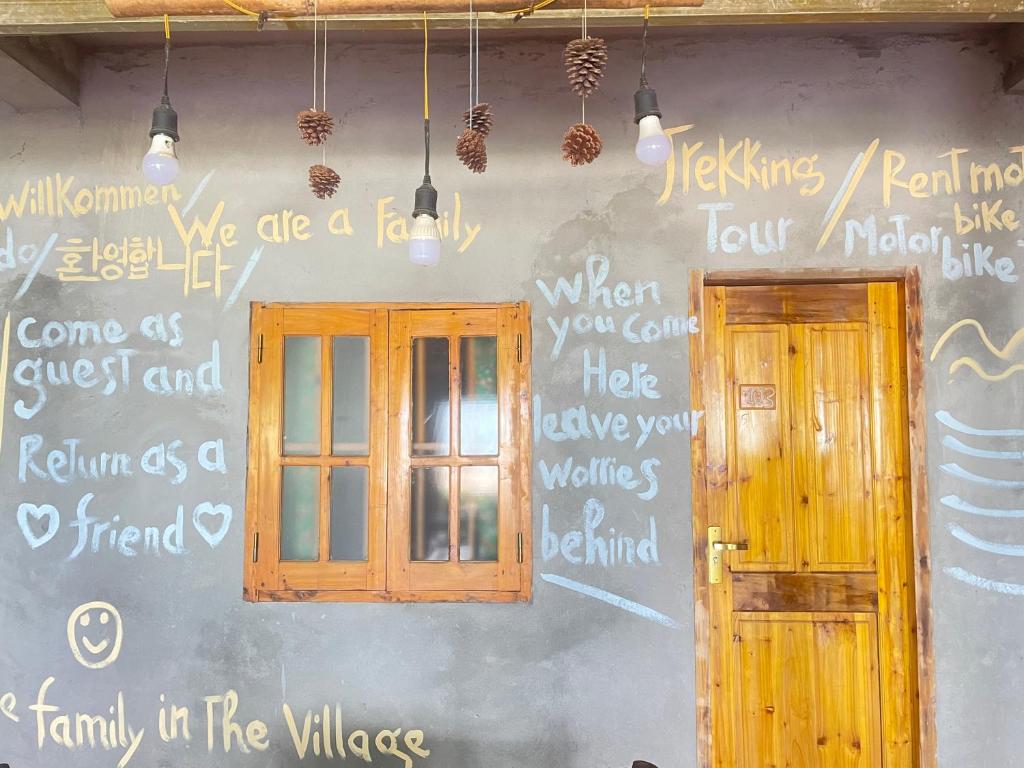 Willkommen
We are a Family
do/ 화영합니다/
Come as
guest and
Return as a
friend
When
you Come
Here
leave your
Worries
behind
Trekking
Tour
/ Rent mot
bike
Motor
bike
e family in The Village